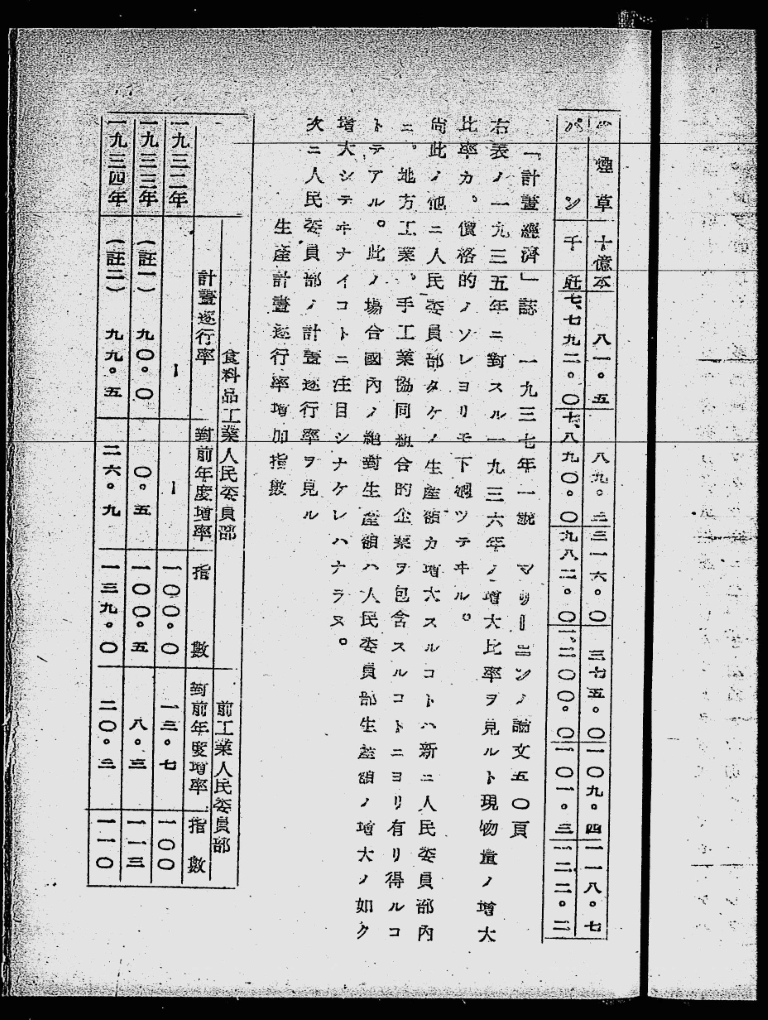 〃 煙草 十億本 八一。五 八九。二 三一六。〇 三七五。〇 一〇九。四 一一八。七
パン 千瓲 七、七九二。〇 七、八九〇。〇 九八二。〇 一、二〇〇。〇 一〇一。三 一二二。二
「計畫經濟」誌 一九三七年一號 マリーニンノ論文五〇頁
右表ノ一九三五年ニ對スル一九三六年ノ増大比率ヲ見ルト現物量ノ増大
比率カ。價格的ノソレヨリモ下廻ツテヰル。
尚此ノ他ニ人民委員部タケノ生産額カ増大スルコトハ新ニ人民委員部內
ニ。地方工業。手工業協同組合的企業ヲ包含スルコトニヨリ有リ得ルコ
トテアル。此ノ場合國內ノ絶對生産額ハ人民委員部生産額ノ増大ノ如ク
増大シテヰナイコトニ注目シナケレハナラヌ。
次ニ人民委員部ノ計畫遂行率ヲ見ル
生産計畫遂行率増加指數
食料品工業人民委員部 前工業人民委員部
計畫遂行率 對前年度増率 指數 對前年度増率 指數
一九三二年 ー ー 一〇〇。〇 一三。七 一〇〇
一九三三年 (註一) 九〇。〇 〇。五 一〇〇。五 八。三 一一三
一九三四年 (註二) 九九。五 二六。九 一三九。〇 二〇。二 一一〇